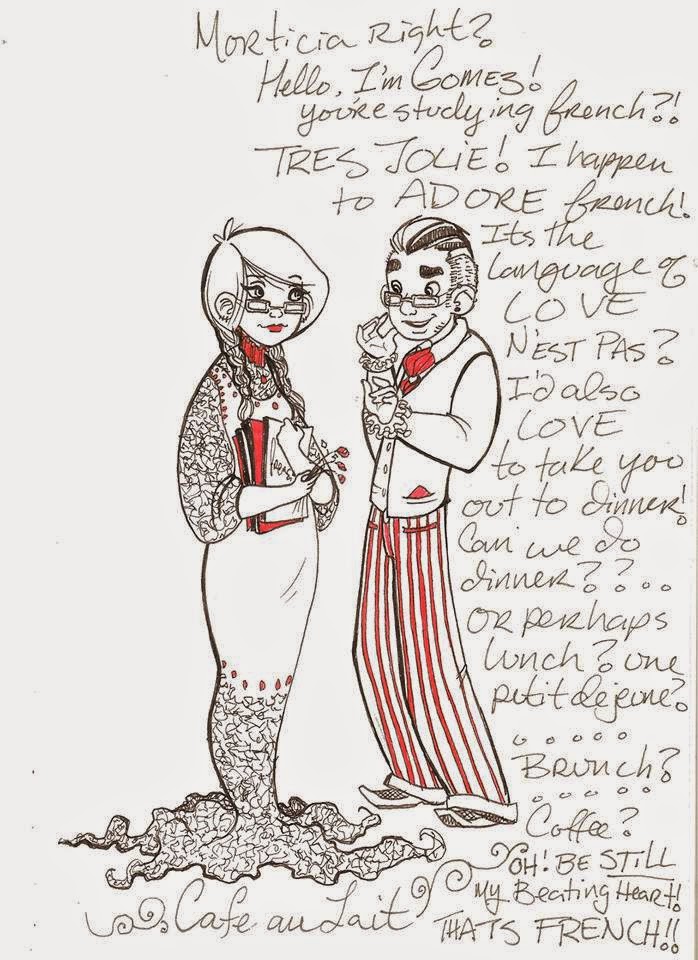 Morticia right?
Hello, I'm Gomez!
you're studying french?!
TRES JOLIE! I happen
to ADORE french!
Its the
language of
LOVE
N'EST PAS?
I'd also
LOVE
to take you
out to dinner!
Can we do
dinner??....
or perhaps
lunch? une
petit dejeune?
.....
Brunch?
.....
Coffee?
Cafe au Lait
OH! BE STILL
My Beating Heart!
THATS FRENCH!!